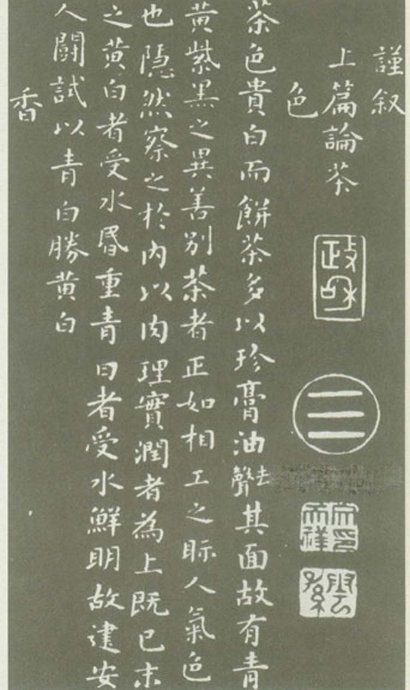 謹叙
上篇論茶
色
茶色貴白而餅茶多以珍膏油去聲其面故有青
黄紫黑之異善別茶者正如相工之眎人氣色
也隠然察之於内以肉理實潤者為上既已末
之黄白者受水昏重青白者受水鮮明故建安
人闘試以青白勝黄白
香
政和